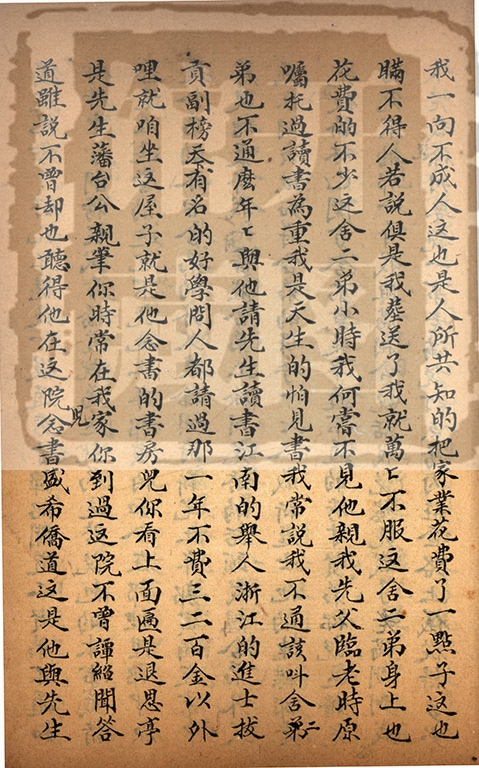 我一向不成人这也是人所共知的把家業花費了一點子这也
瞞不得人若說俱是我葬送了我就萬〻不服这舍二弟身上也
花費的不少这舍二弟小時我何嘗不見他親我先父臨老時原
囑托过讀書為重我是天生的怕見書我常說我不通該呌舍二弟
弟也不通麽年〻與他請先生讀書江南的舉人浙江的進士拔
貢副榜天有名的好學問人都請過那一年不費三二百金以外
哩就咱坐这屋子就是他念書的書房兒你看上面匾是退思亭
是先生藩台公親筆你時常在我家你到過这院不曾譚紹聞答
道雖說不曾却也聽得他在这院念書盛希僑道这是他與先生
見